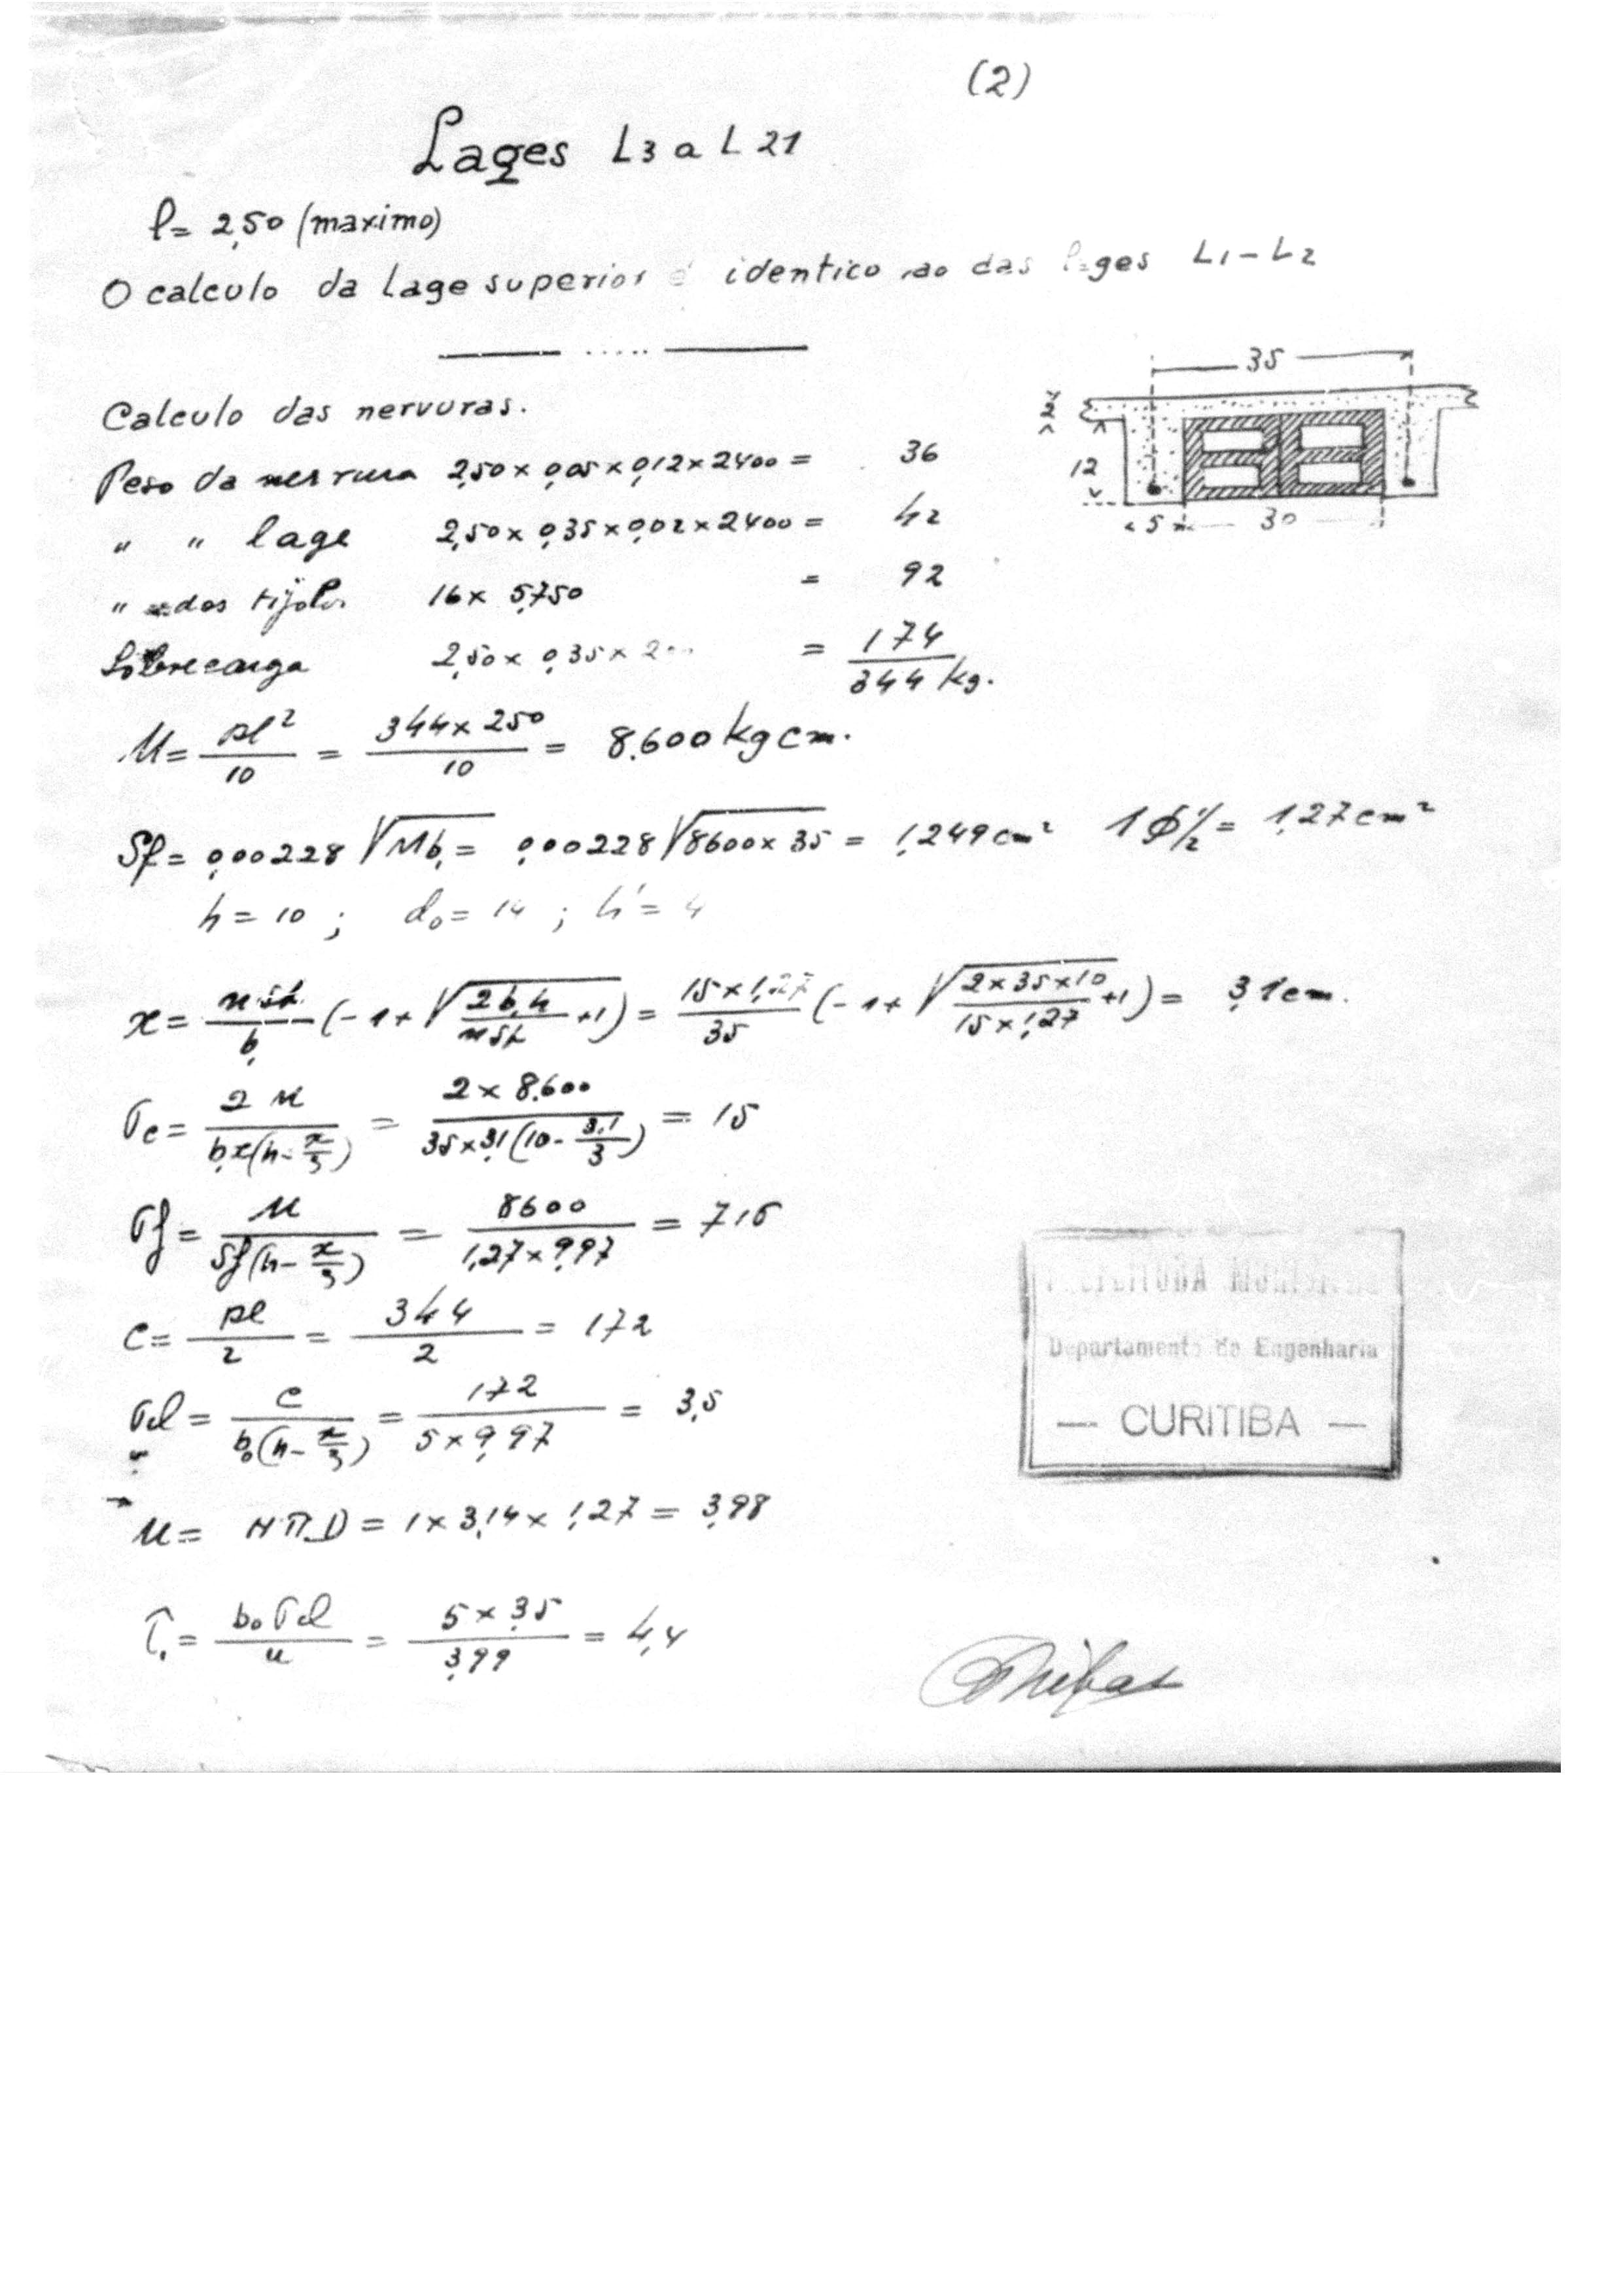 (2)
Lages L3 a L 21
l = 2,50 (maximo)
O calculo da Lage superior é identico ao das lages L1 - L2
35
2
12
5
30
Calculo das nervuras.
Peso da nervura 2,50 x 0,05 x 0,12 x 2400 = 36
" " lage 2,50 x 0,35 x 0,02 x 2400 = 42
" dos tijolos 16 x 5,750 = 92
Sobrecarga 2,50 x 0,35 x = 174
344 kg.
M = pl²/10 = 344 x 250/10 = 8.600 kg cm.
Sf = 0,00228 √Mb, = 0,00228 √8600 x 35 = 1,249 cm² 1 ϕ ½ = 1,27 cm²
h = 10 ; d₀ = 14 ; h' = 4
x = n Sf/b, (-1 + √2b,h/nSf +1) = 15 x 1,27/35 (-1 + √2 x 35 x 10/15 x 1,27 +1) = 3,1 cm.
σc = 2 M/b,x(h - x/3) = 2 x 8.600/35 x 3,1 (10 - 3,1/3) = 15
σf = M/Sf(h - x/3) = 8600/1,27 x 9,97 = 715
C = pl/2 = 344/2 = 172
σd = C/b₀(h - x/3) = 172/5 x 9,97 = 3,5
u = N π D = 1 x 3,14 x 1,27 = 3,98
τ, = b₀ σd/u = 5 x 3,5/3,99 = 4,4
Departamento de Engenharia
— CURITIBA —